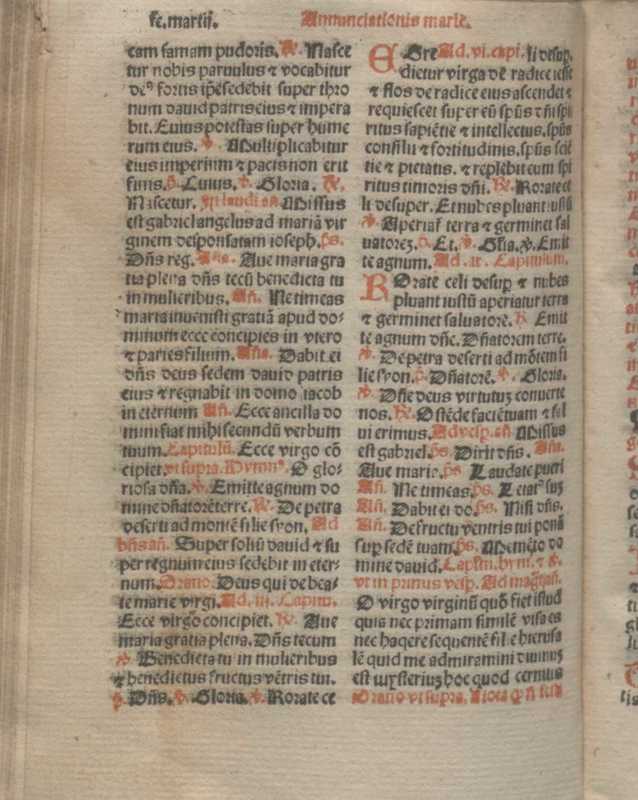 fe. martij. Annunciationis marie.
eam famam pudoris. R̃. Nasce
tur nobis paruulus ⁊ vocabitur
deꝰ fortis ip̃e sedebit super thro
num dauid patris eius ⁊ impera
bit. Euius potestas super hume
rum eius. v̾. Multiplicabitur
eius imperium ⁊ pacis non erit
finis. p̃. Cuius. v̾. Gloria. R̃.
Nascetur. In laudi. añ. Missus
est gabriel angelus ad mariã vir
ginem desponsatam ioseph. p̃s.
Dñs reg. Aña. Aue maria gra
tia plena dñs tecũ benedicta tu
in mulieribus. Añ. Ne timeas
maria inuenisti gratiã apud do-
minum ecce concipies in vtero
⁊ paries filium. Aña. Dabit ei
dñs deus sedem dauid patris
eius ⁊ regnabit in domo iacob
in eternum Añ. Ecce ancilla do
mini fiat mihi secundũ verbum
tuum. Capitulũ. Ecce virgo cõ
cipiet. vt supra. Hymnꝰ. O glo-
riosa dña. v̾. Emitte agnum do
mine dñatorẽ terre. R̃. De petra
deserti ad montẽ filie syon. Ad
bñs añ. Super soliũ dauid ⁊ su
per regnum eius sedebit in eter-
num. Oratio. Deus qui de bea-
te marie virgi. Ad. iij. Capitu.
Ecce virgo concipiet. R̃. Aue
maria gratia plena. Dñs tecum
v̾. Benedicta tu in mulieribus
⁊ benedictus fructus vẽtris tui.
p̃. Dñs. v̾. Gloria. v̾. Rorate ce
EGre Ad. vi. capi. li desuꝑ.
dietur virga de radice iesse
⁊ flos de radice eius ascendet ⁊
requiescet super eũ spũs dñi spi
ritus sapiẽtie ⁊ intellectus. spũs
consilij ⁊ fortitudinis. spũs sciẽ
tie ⁊ pietatis. ⁊ replebit eum spi
ritus timoris dñi. R̃. Rorate ce
li desuper. Et nubes pluant iustũ
v̾. Aperiat̃ terra ⁊ germinet sal
uatorẽ. p̃. Et. v̾. Glia. v̾. Emit
te agnum. Ad. ix. Capitulum.
ROrate celi desuꝑ ⁊ nubes
pluant iustũ aperiatur terra
⁊ germinet saluatorẽ. R̃. Emit
te agnum dñe. Dñatorem terre.
v̾. De petra deserti ad mõtem fi
lie syon. p̃. Dñatorẽ. v̾. Gloria.
v̾. Dñe deus virtutuꝫ conuerte
nos. R̃. Ostẽde faciẽ tuam ⁊ sal
ui erimus. Ad vesꝑ. añ. Missus
est gabriel. p̃s. Dixit dñs. Aña.
Aue maria. p̃s. Laudate pueri
Añ. Ne timeas. p̃s. Letatꝰ suꝫ
Añ. Dabit ei do. p̃s. Nisi dñs.
Añ. De fructu ventris tui ponã
suꝑ sedẽ tuam. p̃s. Memẽto do
mine dauid. Capitm. hym. ⁊ v̾.
vt in primis vesp. Ad mag̃t. añ.
O virgo virginũ quõ fiet istud
quia nec primam similẽ visa es
nec habere sequentẽ filie hierusa
lẽ quid me admiramini diuinuꝫ
est mysteriuꝫ hoc quod cernitis
Oratio vt supra.